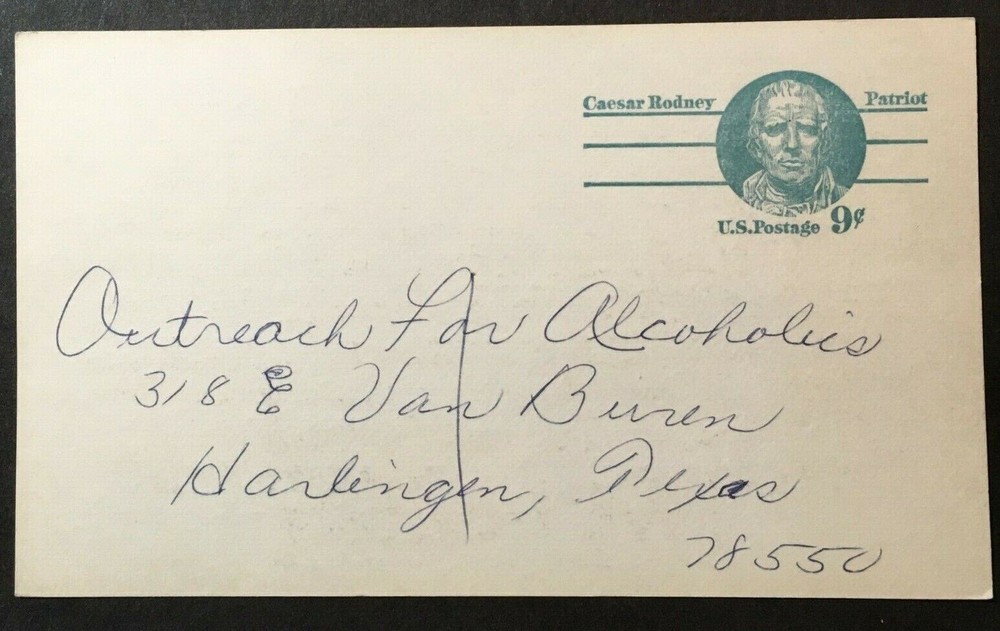 Caesar Rodney Patriot
U.S.Postage 9¢
Outreach For Alcoholics
318 E Van Buren
Harlingen, Texas
78550